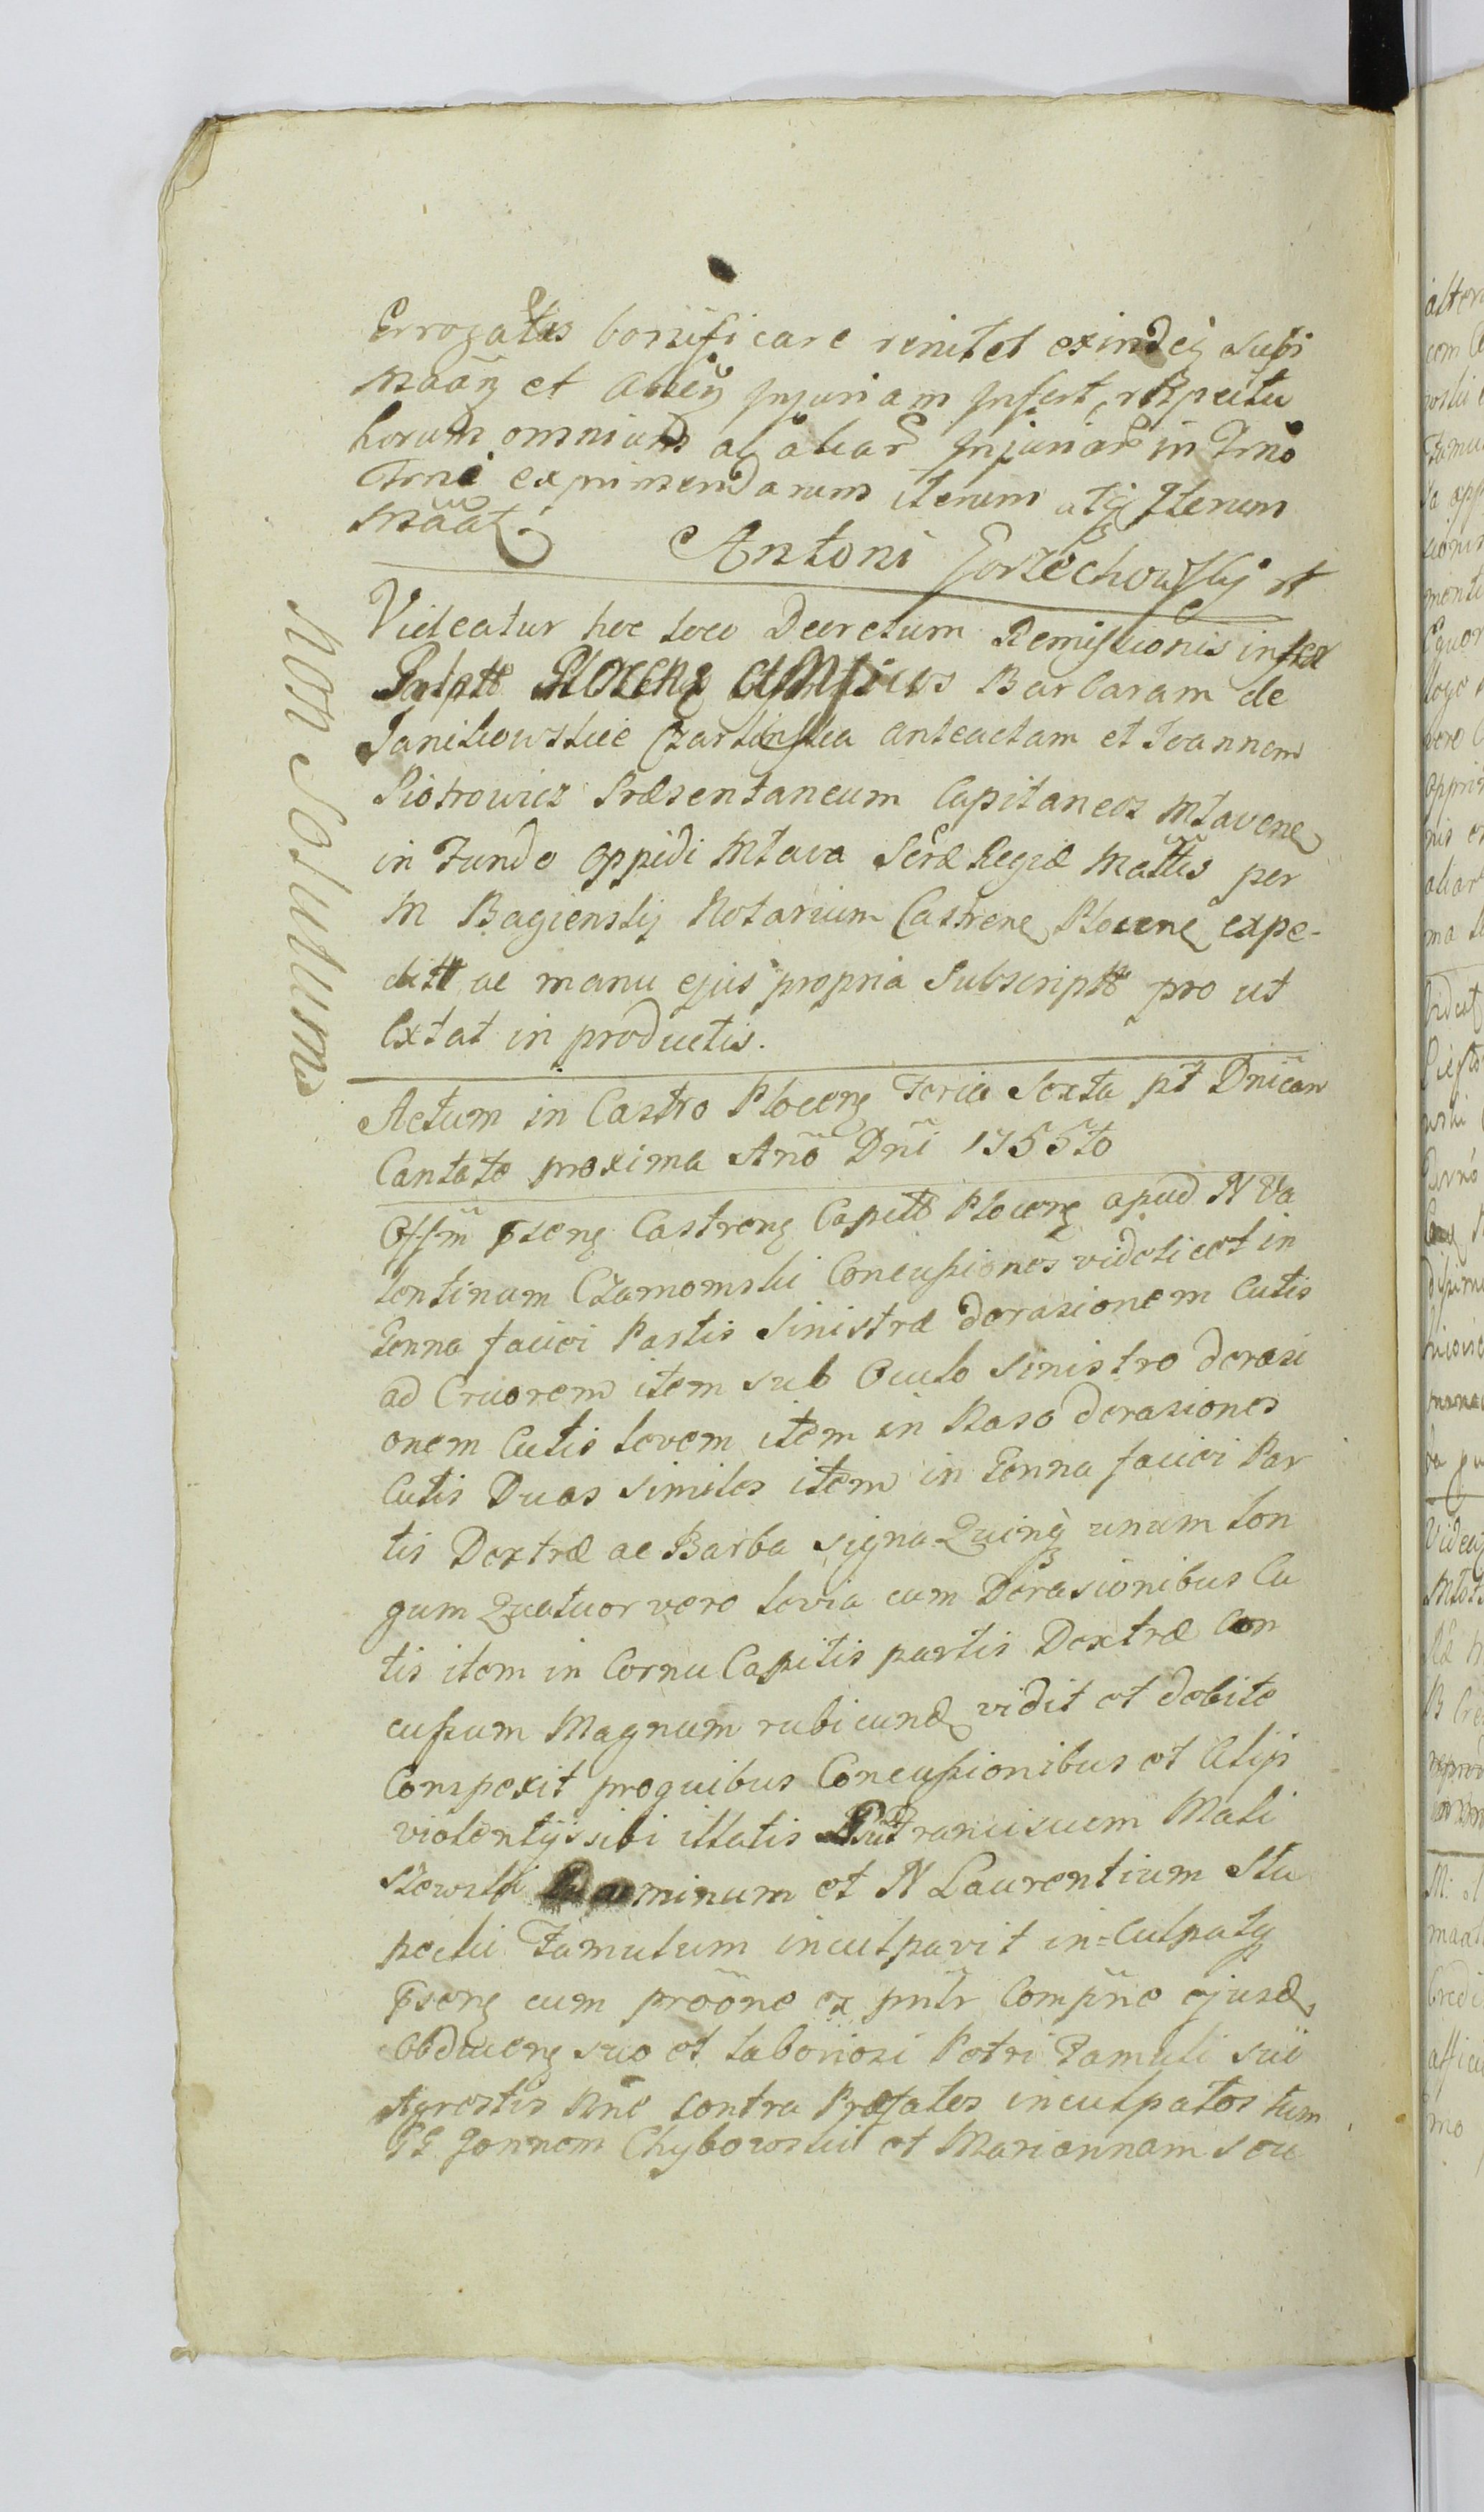 Errogatas bonificare renitet exindeq subi
Maaz et Actez Injuriam Infert, respectu
horum omnium ac aliar Injuriar in Trno
Trni exprimendarum iterum atq Iterum
Maat.
Antoni Gorzechowskij
Videatur hoc loco Decretum Remissionis infra
Barbaram de
Janikowskie Czarlinska anteactam et Joannem
Piotrowicz Præsentaneum Capitaneos Mlavene
in Fundo Oppidi Mlava Scræ Regiæ Mattis per
M Bagienskij Notarium Castrene Plocene expe-
ditt ac manu ejus propria Subscriptt pro ut
Extat in productis.
Non Solutum
Actum in Castro Plocenz Feria Sexta pt Dnicam
Cantate proxima Ano Dni 1755to
Offm psenz Castrenz Capitt Plocenz apud N Va
lentinum Czarnomski Concussiones videlicet in
Genna faciei Partis Sinistræ derasionem Cutis
ad Cruorem item sub Oculo sinistro derasi
onem Cutis levem item in Naso derasiones
Cutis Duas similes item in Genna faciei Par
tis Dextræ ac Barba signa Quinq unum lon
gum Quatuor vero levia cum Derasionibus Cu
tis item in Cornu Capitis partis Dextræ Con
cussum Magnum rubicund vidit et debite
Conspexit proquibus Concussionibus et Alijs
violentijs sibi illatis Franciscum Mali
szewski Dominum et N Laurentium Stu
pecki Famulum inculpavit in=Culpatq
psenz cum proone ex pntr Compne ejusd
Obducenz suo et laboriosi Petri Famuli sui
Agrestis Nne contra Præfatos inculpatos tum
GG Joannem Chybowski et Mariannam seu